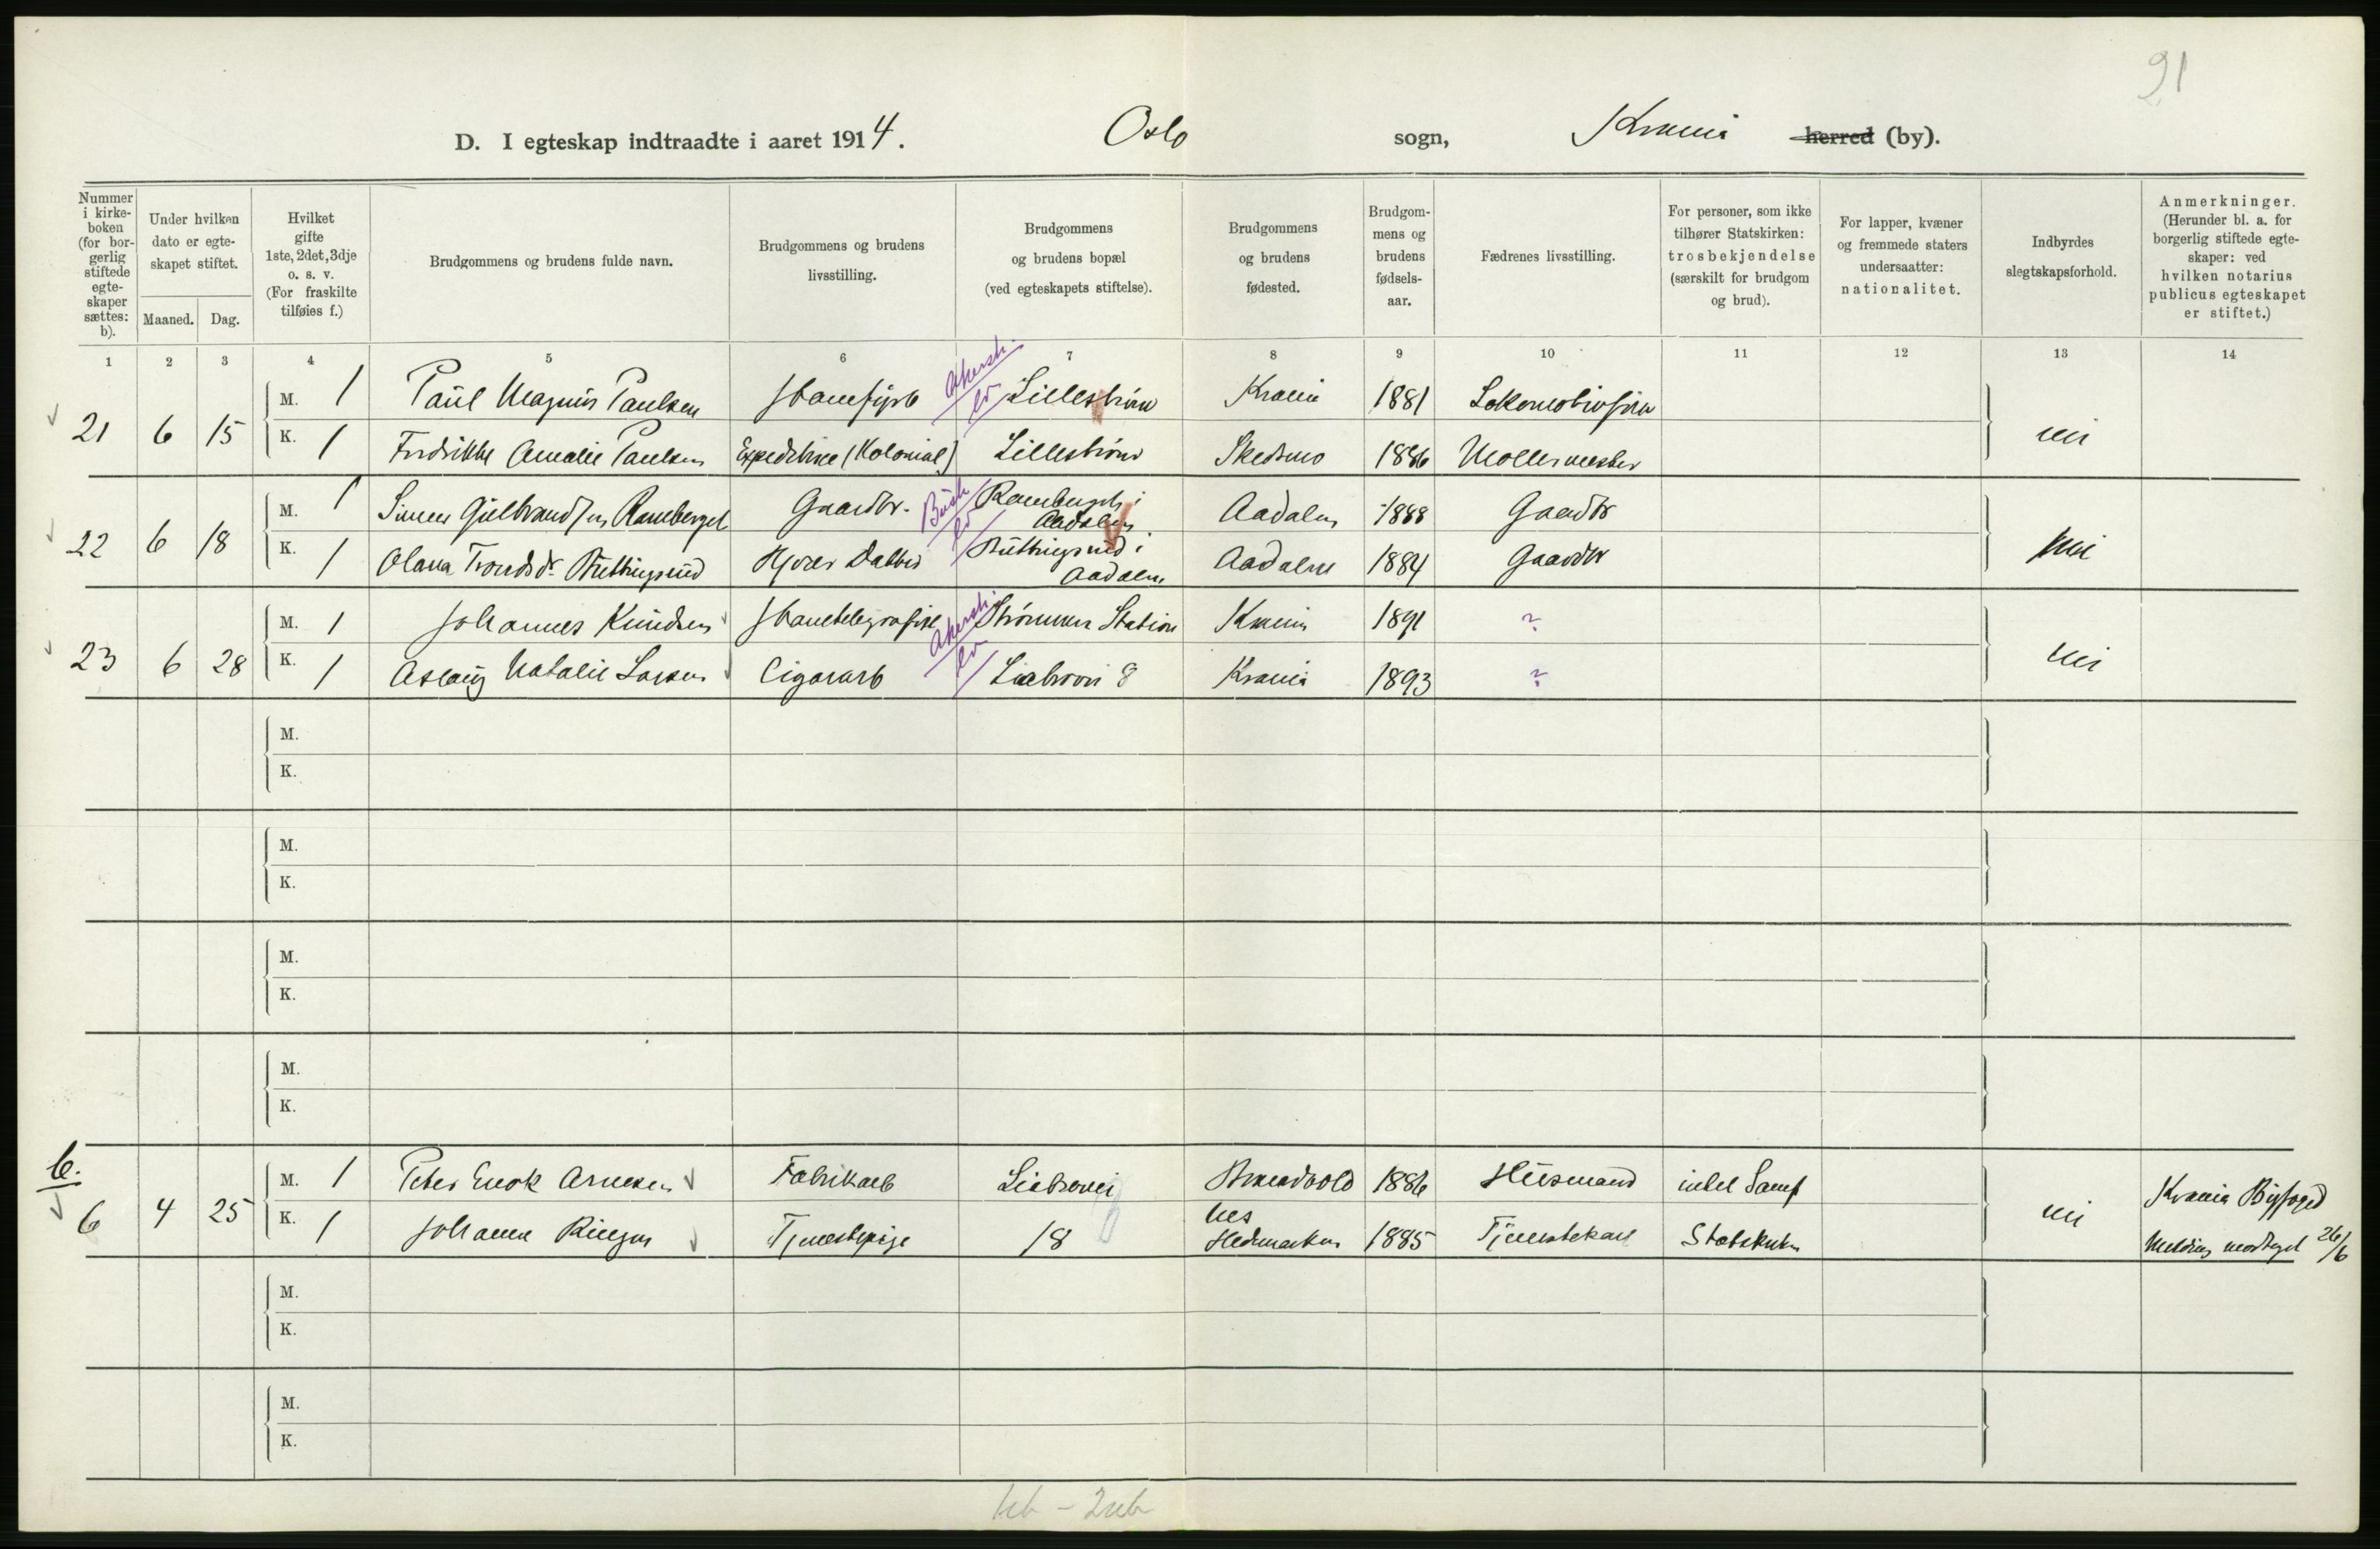 91
D. I egteskap indtraadte i aaret 1914. Oslo sogn, Krania herred (by).
Nummer i kirkeboken (for borgerlig stiftede egteskaper sættes: b).
Under hvilken dato er egteskapet stiftet.
Maaned. Dag.
Hvilket gifte 1ste, 2det, 3dje o. s. v. (For fraskilte tilføies f.)
Brudgommens og brudens fulde navn.
Brudgommens og brudens livsstilling.
Brudgommens og brudens bopæl (ved egteskapets stiftelse).
Brudgommens og brudens fødested.
Brudgommens og brudens fødselsaar.
Fædrenes livsstilling.
For personer, som ikke tilhører Statskirken: trosbekjendelse (særskilt for brudgom og brud).
For lapper, kvæner og fremmede staters undersaatter: nationalitet.
Indbyrdes slegtskapsforhold.
Anmerkninger. (Herunder bl. a. for borgerlig stiftede egteskaper: ved hvilken notarius publicus egteskapet er stiftet.)
1 2 3 4 5 6 7 8 9 10 11 12 13 14
21 6 15 M. 1 Paul Magnus Paulsen Akersh. Lillestrøm Krania 1881 Lokomotivfører nei
K. 1 Fredrikke Amalie Paulsen Expeditrice (Kolonial) Lillestrøm Skedsmo 1886 Møllermester
22 6 18 M. 1 Simen Gulbrandsen Ramberget Gaardbr. Busk Ramberget i Aadalen Aadalen 1888 Gaardbr nei
K. 1 Olava Trondsdr. Buttingsrud Hjver Datter Buttingsrud i Aadalen Aadalen 1884 Gaardbr
23 6 28 M. 1 Johannes Knudsen Akersh. Strømmen Station Krania 1891 ? nei
K. 1 Aslaug Natalie Larsen Cigararb Liabrovei 8 Krania 1893 ?
M.
K.
M.
K.
M.
K.
M.
K.
b.
6 4 25 M. 1 Peter Enok Arnesen Fabrikarb Liabrovei Brandvold 1886 Husmand nei Krania Byfoged
K. 1 Johanne Ringen Tjenestepige 18 Nes Hedemarken 1885 Tjenestekarl Statskirken Melding modtaget 26/6
M.
K.
M.
K.